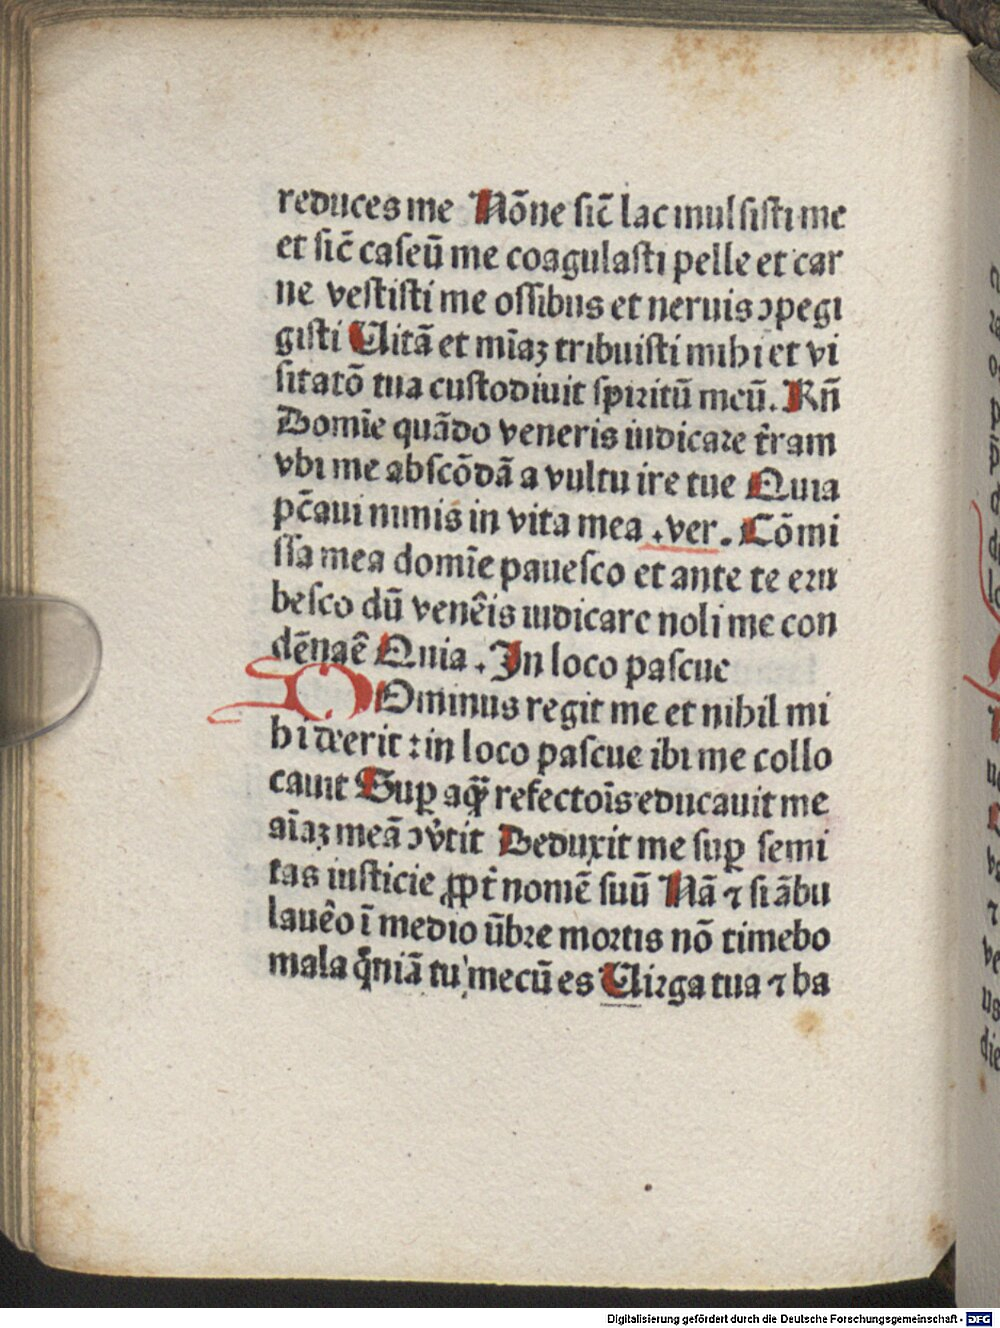 reduces me Nōne sic̄ lac mulsisti me
et sic̄ caseū me coagulasti pelle et car
ne vestisti me ossibus et neruis ↄpegi
gisti Uitā et mīaꝫ tribuisti mihi et vi
sitatō tua custodiuit spiritū meū. Rn̄
Domīe quādo veneris iudicare t̄ram
vbi me abscōdā a vultu ire tue Quia
pc̄aui nimis in vita mea .ver. Cōmi
ssa mea domīe pauesco et ante te eru
besco dū venêis iudicare noli me con
dēnaê Quia . In loco pascue
DOminus regit me et nihil mi
hi deerit : in loco pascue ibi me collo
cauit Suꝑ aq̄ refectoīs educauit me
aīaꝫ meā ↄv̓tit Deduxit me suꝑ semi
tas iusticie ꝓpt̄ nomē suū Nā ⁊ si ābu
lauêo ī medio ūbre mortis nō timebo
mala qm̄niā tu mecū es Uirga tua ⁊ ba
Digitalisierung gefördert durch die Deutsche Forschungsgemeinschaft - DFG